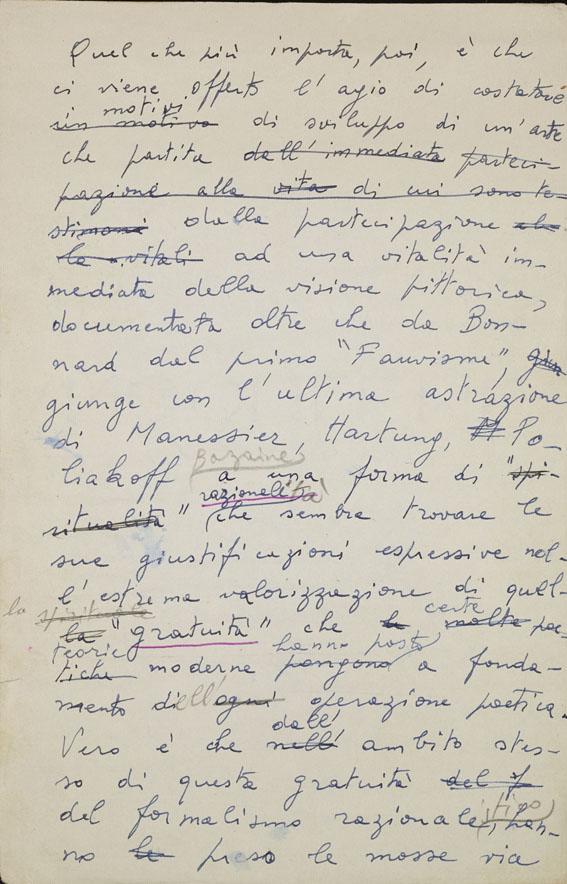 Quel che più importa, poi, è che
ci viene offerto l'agio di costatare
motivi
un motivo di sviluppo di un'arte
che partita dall'immediata parteci-
pazione alla vita di cui sono te-
stimoni dalla partecipazione che
la vitali ad una vitalità im-
mediata della visione pittorica,
documentata oltre che da Bon-
nard dal primo "Fauvisme", giun
giunge con l'ultima astrazione
di Manessier, Hartung, M Po-
Bazaine
liakoff a una forma di "spi-
razionalità
ritualità" che sembra trovare le
sue giustificazioni espressive nel-
l'estrema valorizzazione di quel-
la spirituale certe
la "gratuità" che le molte poe-
teorie hanno posto
tiche moderne pongono a fonda-
mento dell' ogni operazione poetica.
dall'
Vero è che nell' ambito stes-
so di questa gratuità del f
del formalismo razionale, han-
no le preso le mosse via